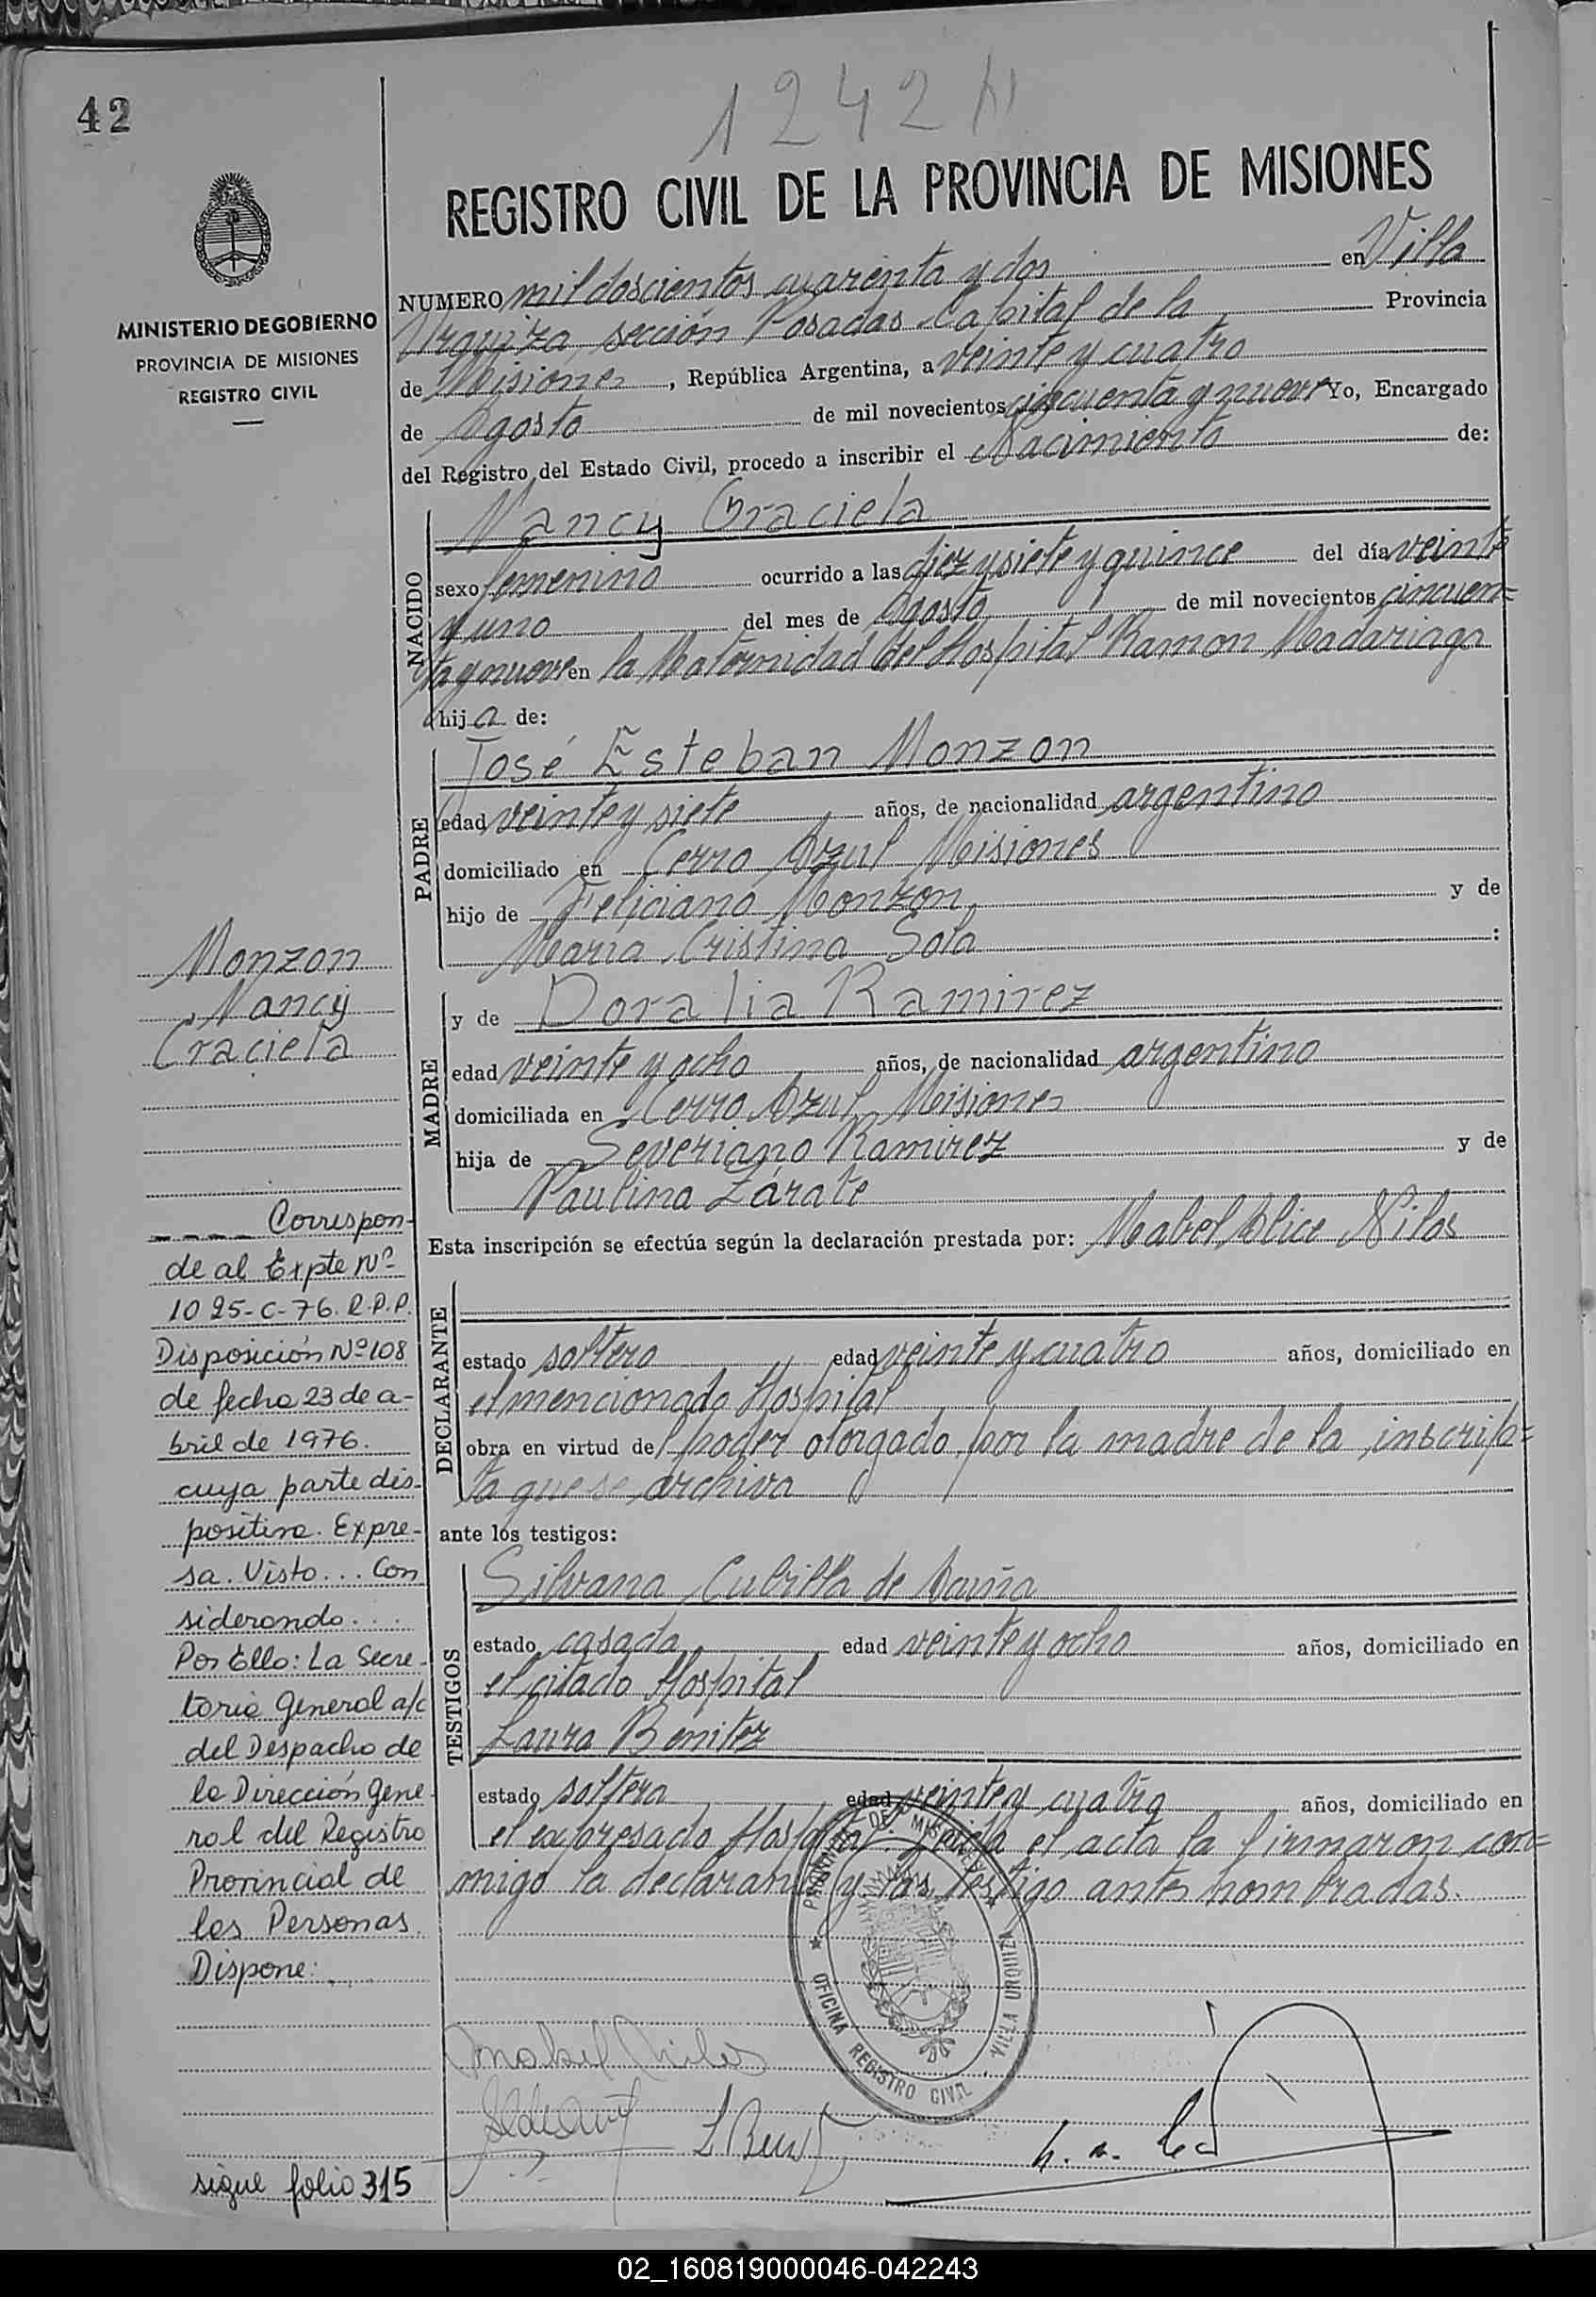 42
1242
REGISTRO CIVIL DE LA PROVINCIA DE MISIONES
MINISTERIO DE GOBIERNO
PROVINCIA DE MISIONES
REGISTRO CIVIL
NUMERO mil doscientos cuarenta y dos en Villa
Urquiza, sección Posadas Capital de la Provincia
de Misiones, República Argentina, a veinte y cuatro
de Agosto de mil novecientos cincuenta y nueve Yo, Encargado
del Registro del Estado Civil, procedo a inscribir el Nacimiento de:
NACIDO
Nancy Graciela
sexo femenino ocurrido a las diez y siete y quince del día veinte
y uno del mes de Agosto de mil novecientos cincuen=
ta y nueve en la Maternidad del Hospital Ramon Madariaga
hija de:
PADRE
José Esteban Monzon
edad veinte y siete años, de nacionalidad argentino
domiciliado en Cerro Azul Misiones
hijo de Feliciano Monzon y de
Maria Cristina Sola :
MADRE
y de Doralia Ramirez
edad veinte y ocho años, de nacionalidad argentino
domiciliada en Cerro Azul Misiones
hija de Severiano Ramirez y de
Paulina Zárate
Esta inscripción se efectúa según la declaración prestada por: Mabel Alice Nilos
DECLARANTE
estado soltero edad veinte y cuatro años, domiciliado en
el mencionado Hospital
obra en virtud del poder otorgado por la madre de la inscrip=
ta que se archiva
ante los testigos:
TESTIGOS
Silvana Cubilla de
estado casada edad veinte y ocho años, domiciliado en
el citado Hospital
Laura Benitez
estado soltera edad veinte y cuatro años, domiciliado en
el expresado Hospital. Leida el acta la firmaron con=
migo la declarante y las testigo antes nombradas.
Monzon
Nancy
Graciela
Correspon-
de al Expte Nº
1025-C-76. R.P.P.
Disposición Nº 108
de fecha 23 de a-
bril de 1976.
cuya parte dis-
positiva. Expre-
sa. Visto... Con
siderando....
Por Ello: La Secre-
taria General a/c
del Despacho de
la Dirección Gene-
ral del Registro
Provincial de
las Personas.
Dispone:..
sigue folio 315
PROVINCIA DE MISIONES
OFICINA REGISTRO CIVIL
VILLA URQUIZA
02_160819000046-042243